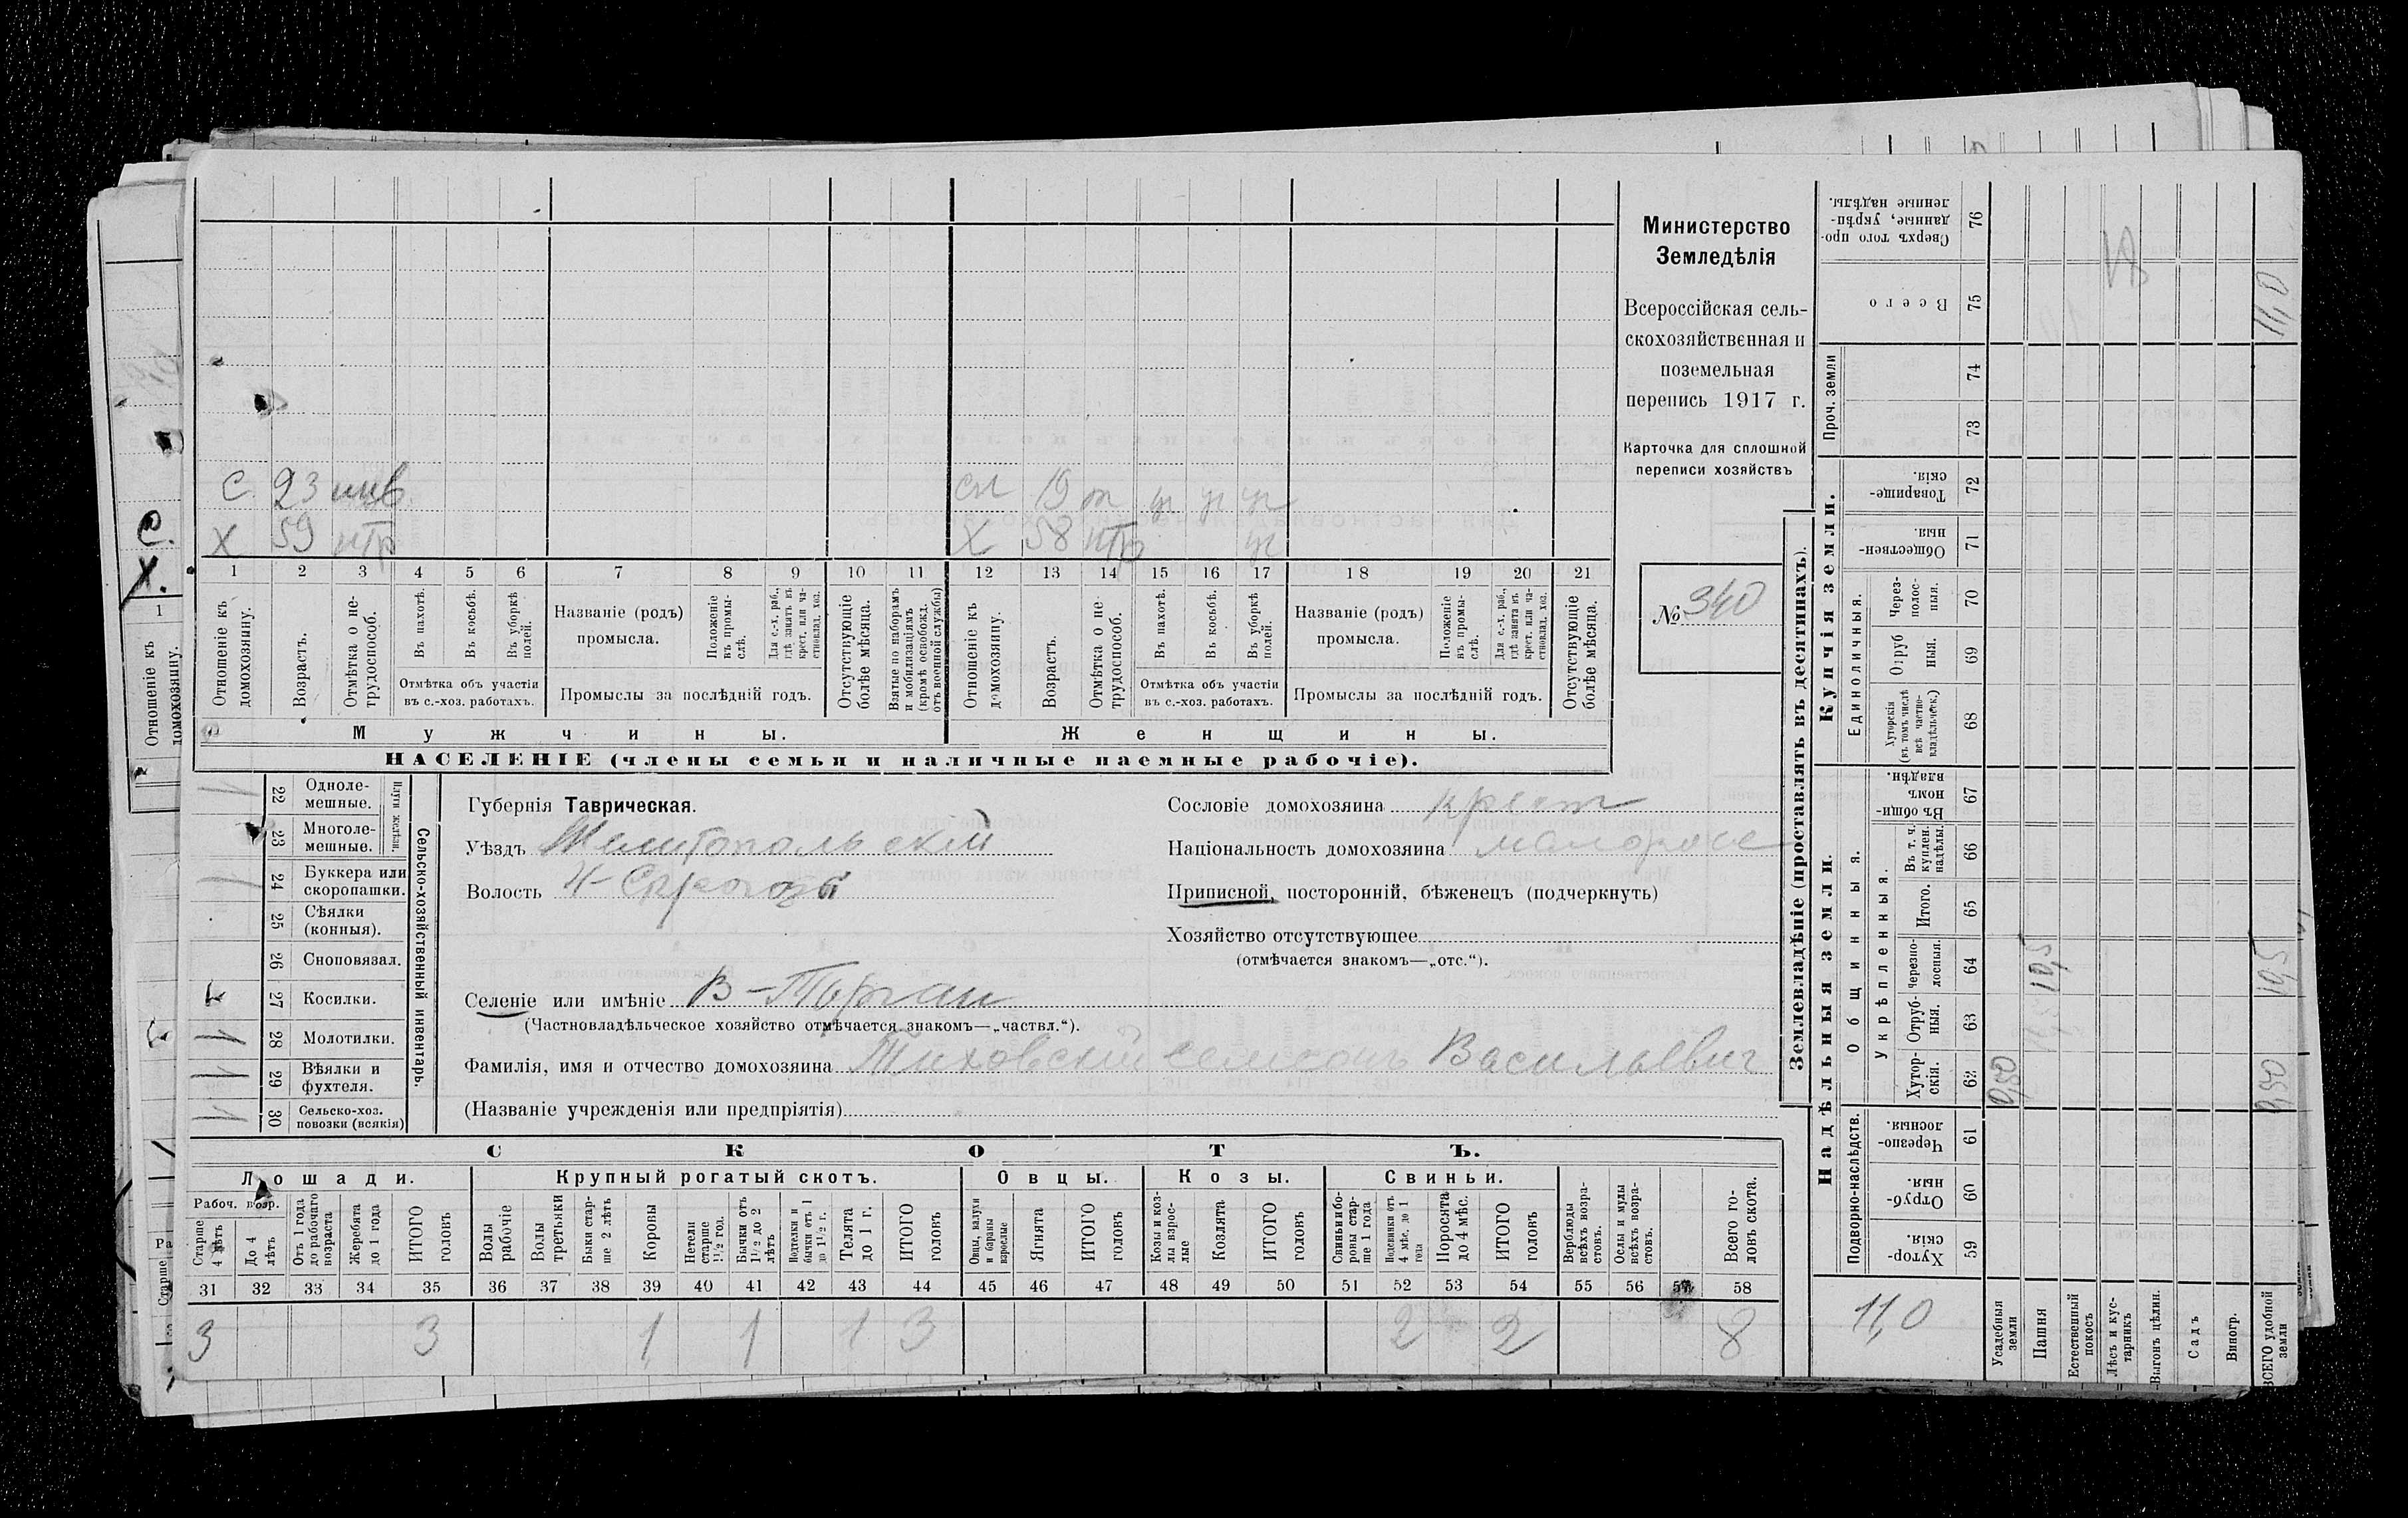 С. 23 инв.
сп 19 т уч уч уч
Х 59 нтр
Х 58 нтр уч
1 2 3 4 5 6 7 8 9 10 11 12 13 14 15 16 17 18 19 20 21
Отношеніе къ домохозяину.
Возрастъ.
Отмѣтка о не-
трудоспособ.
Въ пахотѣ.
Въ косьбѣ.
Въ уборкѣ
полей.
Отмѣтка объ участіи
въ с.-хоз. работахъ.
Названіе (родъ)
промысла.
Положеніе
въ промы-
слѣ.
Для с.-х. раб.,
гдѣ занятъ въ
крест. или ча-
стновлад. хоз.
Промыслы за послѣдній годъ.
Отсутствующіе
болѣе мѣсяца.
Взятые по наборамъ
и мобилизаціямъ
(кромѣ освобожд.
отъ военной службы)
Отношеніе къ
домохозяину.
Возрастъ.
Отмѣтка о не
трудоспособ.
Въ пахотѣ.
Въ косьбѣ.
Въ уборкѣ
полей.
Отмѣтка объ участіи
въ с.-хоз. работахъ.
Названіе (родъ)
промысла.
Положеніе
въ промы-
слѣ.
Для с.-х. раб.,
гдѣ занятъ въ
крест. или ча-
стновлад. хоз.
Промыслы за послѣдній годъ.
Отсутствующіе
болѣе мѣсяца.
Мужчины.
Женщины.
НАСЕЛЕНІЕ (члены семьи и наличные наемные рабочіе).
Министерство
Земледѣлія
Всероссійская сель-
скохозяйственная и
поземельная
перепись 1917 г.
Карточка для сплошной
переписи хозяйствъ
№ 340
1 22 Одноле-
мешные.
23 Многоле-
мешные.
Плуги желѣзн.
1 24 Буккера или
скоропашки.
25 Сѣялки
(конныя).
26 Сноповязал.
27 Косилки.
1 28 Молотилки.
1 29 Вѣялки и
фухтеля.
1 30 Сельско-хоз.
повозки (всякія)
Сельско-хозяйственный инвентарь.
Губернія Таврическая.
Уѣздъ Мелитопольскій
Волость Н-Сѣрогозы
Сословіе домохозяина крест
Національность домохозяина малоросс
Приписной, посторонній, бѣженецъ (подчеркнуть)
Хозяйство отсутствующее
(отмѣчается знакомъ—„отс.“).
Селеніе или имѣніе В-Торгаи
(Частновладѣльческое хозяйство отмѣчается знакомъ—„частвл.“).
Фамилія, имя и отчество домохозяина Тиховскій Семёонъ Васильевич
(Названіе учрежденія или предпріятія)
СКОТЪ.
Лошади. Крупный рогатый скотъ. Овцы. Козы. Свиньи.
Рабоч. возр.
Старше
4 лѣтъ
До 4
лѣтъ
Отъ 1 года
до рабочаго
возраста
Жеребята
до 1 года
ИТОГО
головъ
Волы
рабочіе
Волы
третьяки
Быки стар-
ше 2 лѣтъ
Коровы
Нетели
старше
1½ год.
Бычки отъ
1½ до 2
лѣтъ
Подтелки и
бычки отъ 1
до 1½ г.
Телята
до 1 г.
ИТОГО
головъ
Овцы, валухи
и бараны
взрослые
Ягнята
ИТОГО
головъ
Козы и коз-
лы взрос-
лые
Козлята
ИТОГО
головъ
Свиньи и бо-
ровы стар-
ше 1 года
Подсвинки отъ
4 мѣс. до 1
года
Поросята
до 4 мѣс.
ИТОГО
головъ
Верблюды
всѣхъ возра-
стовъ.
Ослы и мулы
всѣхъ возра-
стовъ.
Всего го-
ловъ скота.
31 32 33 34 35 36 37 38 39 40 41 42 43 44 45 46 47 48 49 50 51 52 53 54 55 56 57 58
3 3 1 1 1 3 2 2 8
Землевладѣніе (проставлять въ десятинахъ).
Купчія земли.
Надѣльныя земли.
Сверхъ того про-
данные, укрѣп-
ленные надѣлы.
76
Всего
75 11,0
Проч. земли
74
73
Товарище-
скія.
72
Обществен-
ныя
71
Единоличныя.
Через-
полос-
ныя.
70
Отруб
ныя.
69
Хуторскія
(въ томъ числѣ
всѣ частно-
владѣльческ.)
68
Общинныя.
Въ общин-
номъ
владѣн.
67
Укрѣпленныя.
Въ т. ч.
куплен.
надѣлы.
66
Итого.
65
Черезпо-
лосныя.
64 10,5 10,5
Отруб-
ныя.
63
Хутор-
скія.
62 0,50 0,50
Подворно-наслѣдств.
Черезпо-
лосныя.
61
Отруб-
ныя.
60
Хутор-
скія.
59
11,0
Усадебныя
земли
Пашня
Естественный
покосъ
Лѣсъ и кус-
тарникъ
Выгонъ цѣлин.
Садъ
Виногр.
ВСЕГО удобной
земли
С.
Х.
1
Отношеніе къ
домохозяину.
Старше